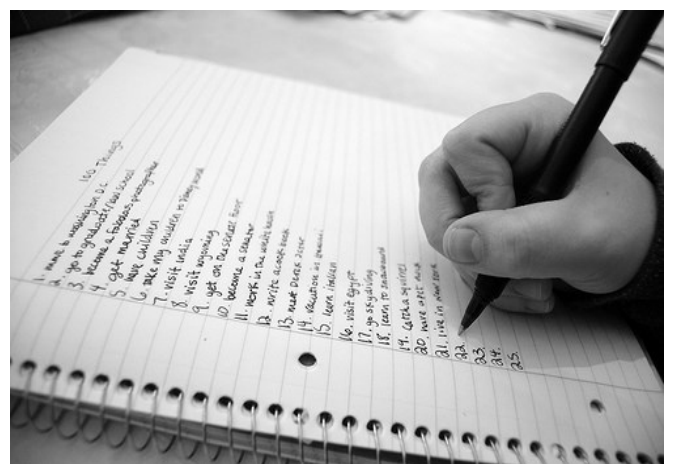 100 Things
1. move to washington D.C.
2. go to graduate/law school
3. become a fabulous photographer
4. get married
5. have children
6. take my children to disney world
7. visit india
8. visit wyoming
9. get on the senate floor
10. become a senator
11. work in the white house
12. write a cook book
13. meet Derek Jeter
14. vacation in
15. learn italian
16. visit egypt
17. go skydiving
18. learn to snowboard
19. catch a squirrel
20. have a pet duck
21. live in new york
22.
23.
24.
25.